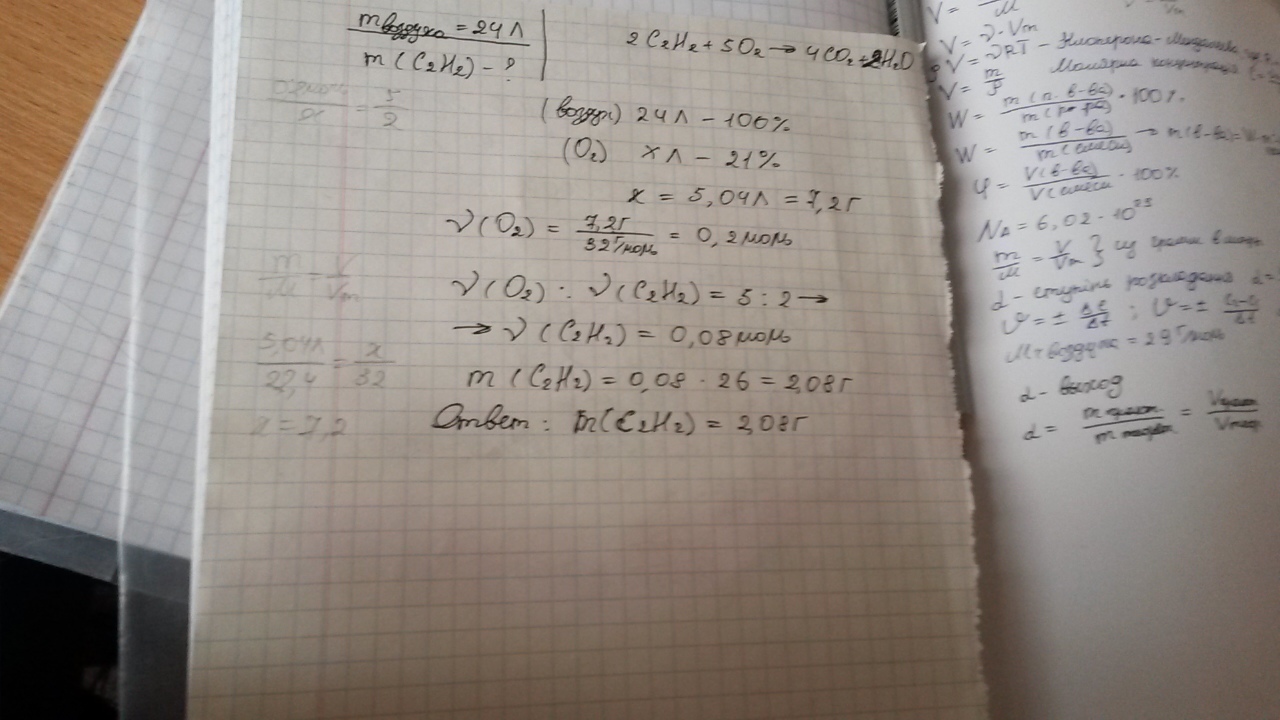 m воздуха = 24 л
m (C2H2) - ?
2C2H2 + 5O2 → 4CO2 + 2H2O
= 5/2
(воздух) 24 л - 100%
(O2) x л - 21%
x = 5,04 л = 7,2 г
ν(O2) = 7,2 г / 32 г/моль = 0,2 моль
m/M V/Vm
ν(O2) : ν(C2H2) = 5 : 2 →
→ ν(C2H2) = 0,08 моль
5,04 л / 22,4 = x / 32
m (C2H2) = 0,08 · 26 = 2,08 г
x = 7,2
Ответ : m(C2H2) = 2,08 г
V =
V = ν · Vm
V = νRT - Клапейрона-Менделеева
V = m/ρ Молярна концентрация
W = m(р. в-ва) / m(р-ра) · 100%
W = m(в-ва) / m(смеси) → m(в-ва) = W
φ = V(в-ва) / V(смеси) · 100%
NA = 6,02 · 10^23
m/M = V/Vm }
α - ступінь розкладання α =
υ = ± Δc/Δt ; υ = ±
M воздуха = 29 г/моль
α - выход
α = m практ / m теорет = V практ / V теор